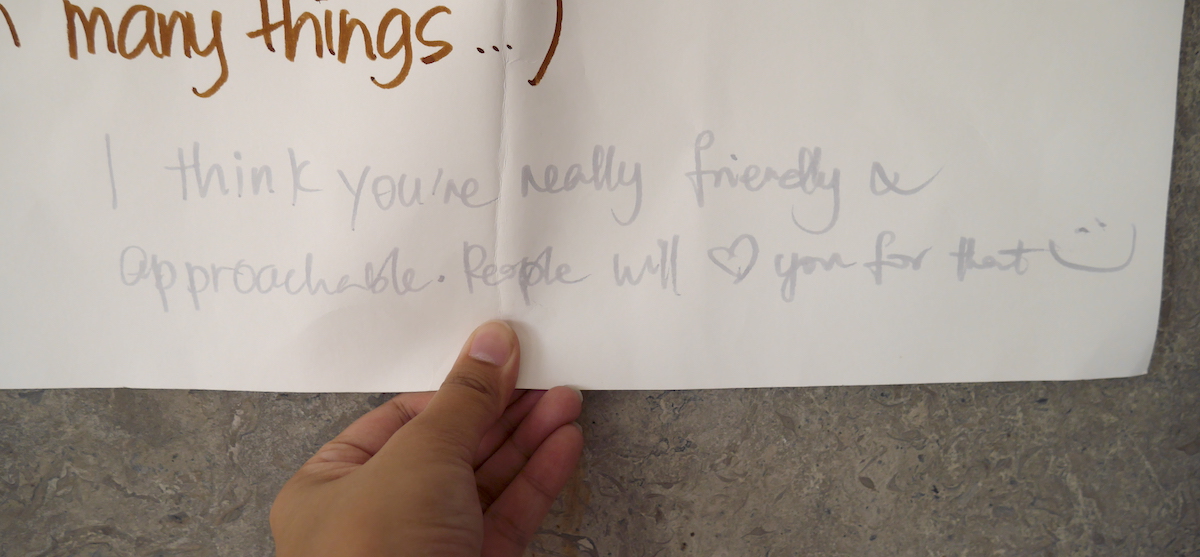 many things...)
I think you're really friendly &
approachable. People will ♡ you for that :)